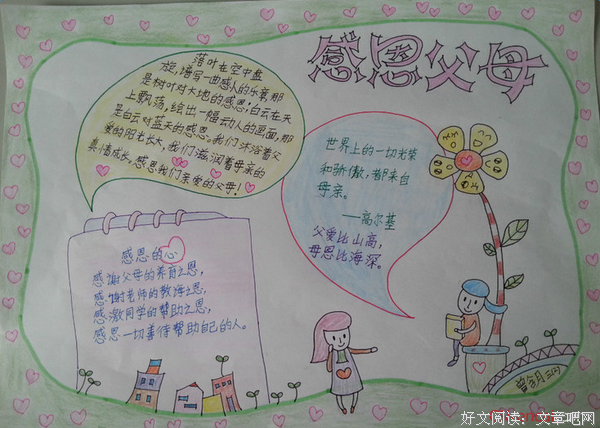 感恩父母
落叶在空中盘
旋,谱写一曲感人的乐章,那
是树叶对大地的感恩;白云在天
上飘荡,绘出一幅动人的画面,那
是白云对蓝天的感恩。我们沐浴着父
爱的阳光长大,我们滋润着母亲的
真情成长,感恩我们亲爱的父母!
世界上的一切光荣
和骄傲,都来自
母亲。
——高尔基
父爱比山高,
母恩比海深。
感恩的心
感谢父母的养育之恩,
感谢老师的教诲之恩,
感激同学的帮助之恩,
感恩一切善待帮助自己的人。
好文阅读:文章吧网